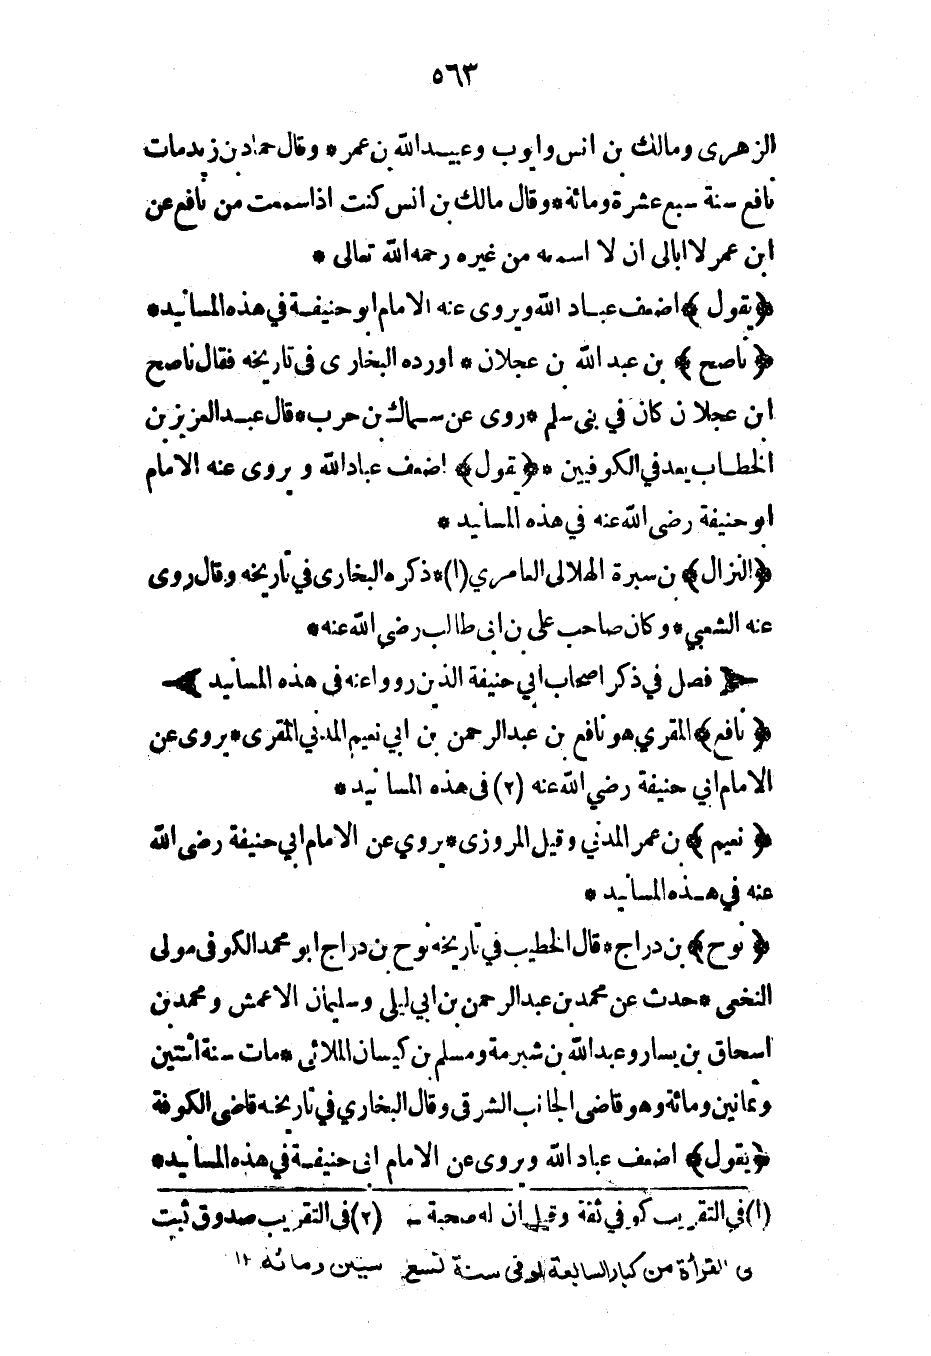 ٥٦٣
الزهرى ومالك بن انس وايوب وعبيد الله بن عمر * وقال حماد بن زيد مات
نافع سنة سبع عشرة ومائة * وقال مالك بن انس كنت اذا سمعت من نافع عن
ابن عمر لا ابالى ان لا اسمعه من غيره رحمه الله تعالى *
﴿يقول﴾ اضعف عباد الله ويروى عنه الامام ابو حنيفة في هذه المسانيد *
﴿ناصح﴾ بن عبد الله بن عجلان * اورده البخارى فى تاريخه فقال ناصح
ابن عجلان كان في بنى سلم * روى عن سماك بن حرب * قال عبد العزيز بن
الخطاب يعد في الكوفيين * ﴿يقول﴾ اضعف عباد الله و يروى عنه الامام
ابو حنيفة رضى الله عنه في هذه المسانيد *
﴿النزال﴾ بن سبرة الهلالى العامري (١) * ذكره البخارى في تاريخه وقال روى
عنه الشعبي * وكان صاحب على بن ابى طالب رضي الله عنه *
فصل في ذكر اصحاب ابي حنيفة الذين رووا عنه فى هذه المسانيد
﴿نافع﴾ المقري هو نافع بن عبد الرحمن بن ابي نعيم المدني المقرى * يروى عن
الامام ابي حنيفة رضي الله عنه (٢) فى هذه المسانيد *
﴿نعيم﴾ بن عمر المدني وقيل المروزى * يروي عن الامام ابي حنيفة رضى الله
عنه في هذه المسانيد *
﴿نوح﴾ بن دراج * قال الخطيب في تاريخه نوح بن دراج ابو محمد الكوفى مولى
النخعى * حدث عن محمد بن عبد الرحمن بن ابي ليلى وسليمان الاعمش ومحمد بن
اسحاق بن يسار وعبد الله بن شبرمة ومسلم بن كيسان الملائى * مات سنة اثنتين
وثمانين ومائة وهو قاضى الجانب الشرقى وقال البخاري في تاريخه قاضى الكوفة
﴿يقول﴾ اضعف عباد الله ويروى عن الامام ابى حنيفة في هذه المسانيد *
(١) في التقريب كوفي ثقة وقيل ان له صحبة – (٢) فى التقريب صدوق ثبت
ى القرأة من كبار السابعة مات فى سنة تسع ستين ومائة ١٢